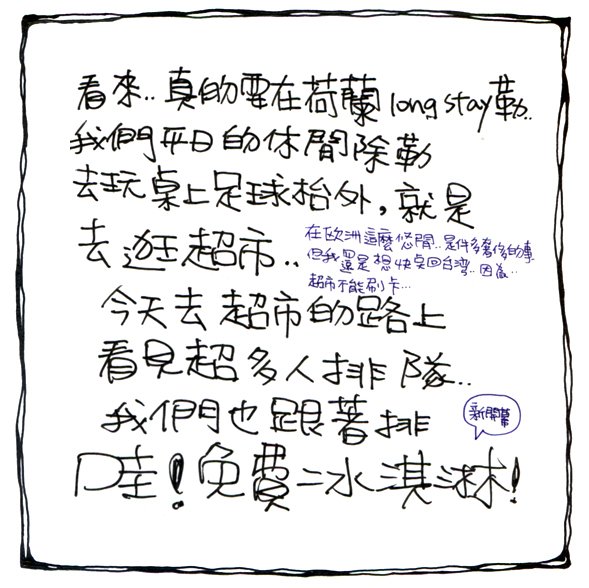 看來..真的要在荷蘭long stay勒..
我們平日的休閒除勒
去玩桌上足球枱外,就是
去逛超市..
在歐洲這麼悠閒..是件多奢侈的事
但我還是想快桌回台湾..因為..
超市不能刷卡...
今天去超市的路上
看見超多人排隊..
我們也跟著排
新開幕
哇!免費冰淇淋!